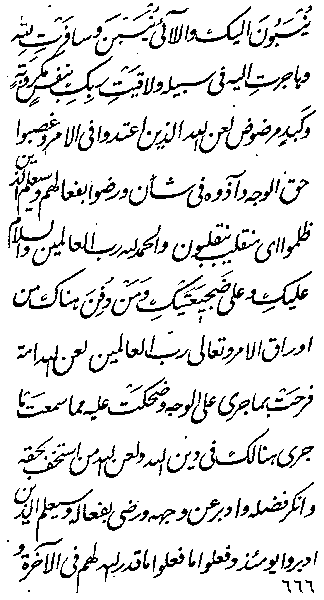 ينسبون اليك واللآئي ينسبن وسافرت لله
وهاجرت اليه في سبيله ولاقيت ربك بنفس مكروبة
وكبد مرضوض لعن الله الذين اعتدوا في الامر وغصبوا
حق الوجه وآذوه في شأن ورضوا بفعالهم وسيعلم الذين
ظلموا اي منقلب ينقلبون والحمد لله رب العالمين والسلام
عليك وعلى ضجيعتيك ومن دفن هناك من
اوراق الامر وتعالى رب العالمين لعن الله امة
فرحت بما جرى على الوجه وضحكت عليه مما سمعت بما
جرى هنالك في دين الله ولعن الله من استخف بحقه
وانكر فضله وادبر عن وجهه ورضي بفعاله وسيعلم الذين
ادبروا يومئذ وفعلوا ما فعلوا ما قدر الله لهم في الآخرة و
٦٦٦